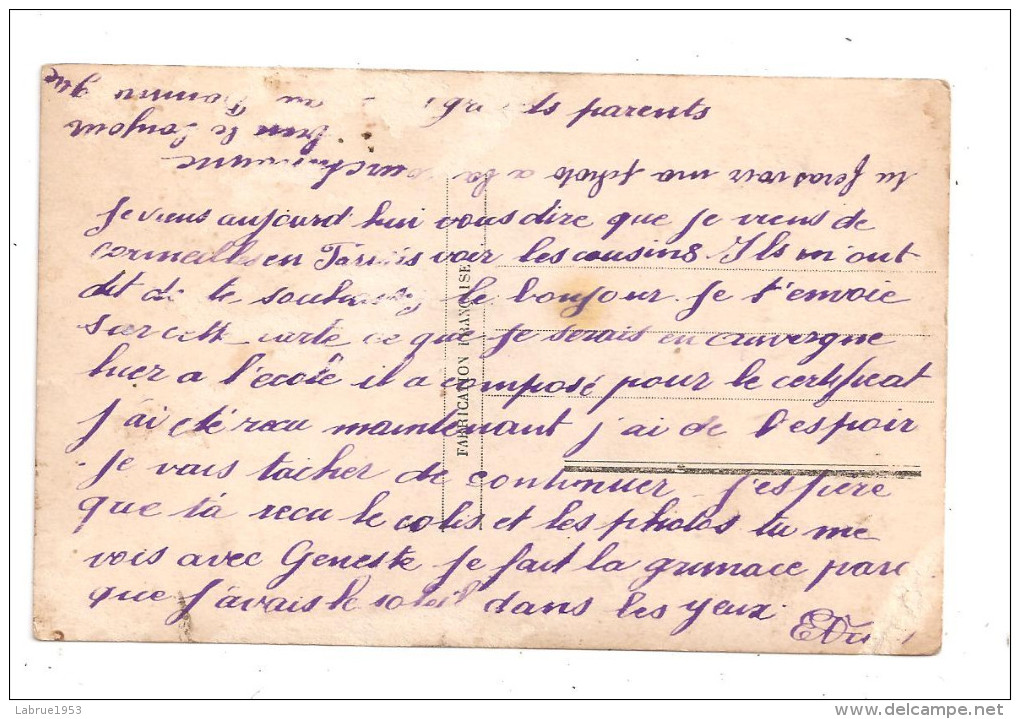 parents
Je viens aujourd'hui vous dire que je viens de
cormeilles en Parisis voir les cousins Ils m'ont
dit de te souhaiter le bonjour je t'envoie
sur cette carte ce que je serais en auvergne
hier a l'école il a composé pour le certificat
j'ai été recu maintenant j'ai de l'espoir
je vais tacher de continuer j'espere
que ta recu le colis et les photos tu me
vois avec Geneste je fait la grimace parc
que j'avais le soleil dans les yeux
tu feras voir ma photo a la
bien le bonjour
au que
FABRICATION FRANÇAISE
Labrue1953
www.delcampe.net